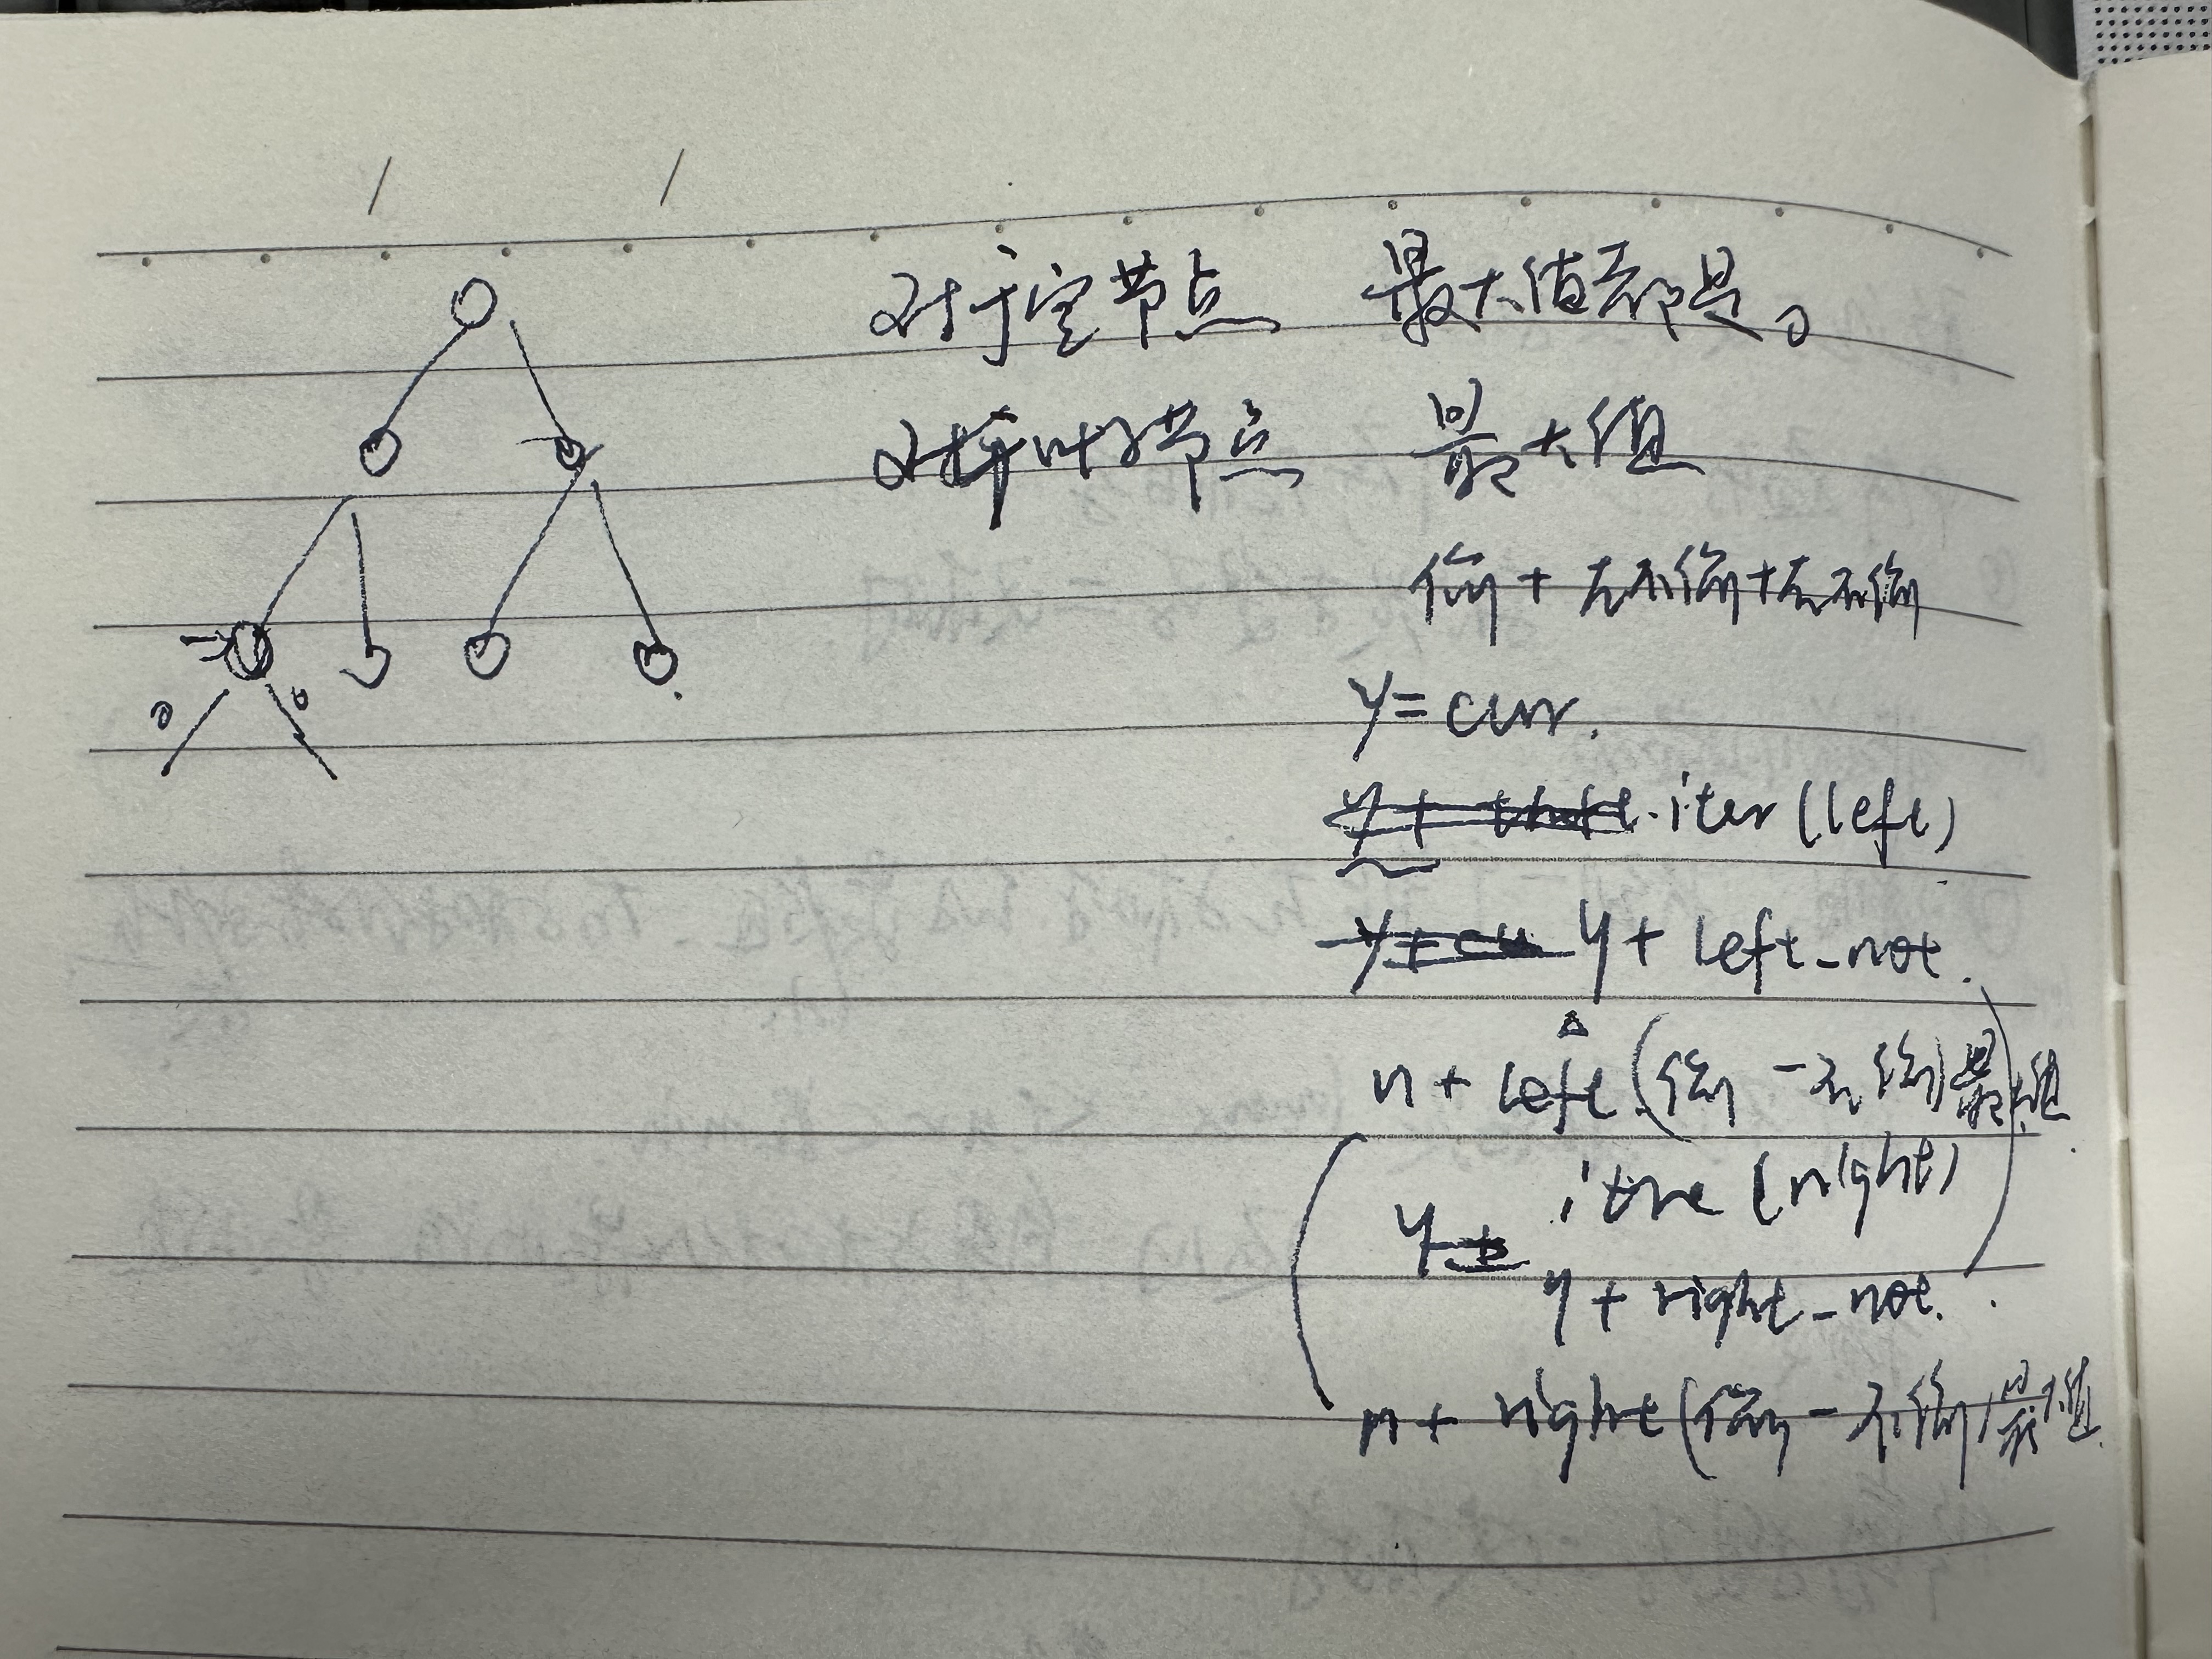 对于空节点 最大值都是0
对于叶子节点 最大值
偷+左不偷+右不偷
y=curr.
iter(left)
y+ left_not.
n+ left(偷-不偷)最大值
itre (right)
y+
y+ right_not.
n+ right(偷-不偷)最大值